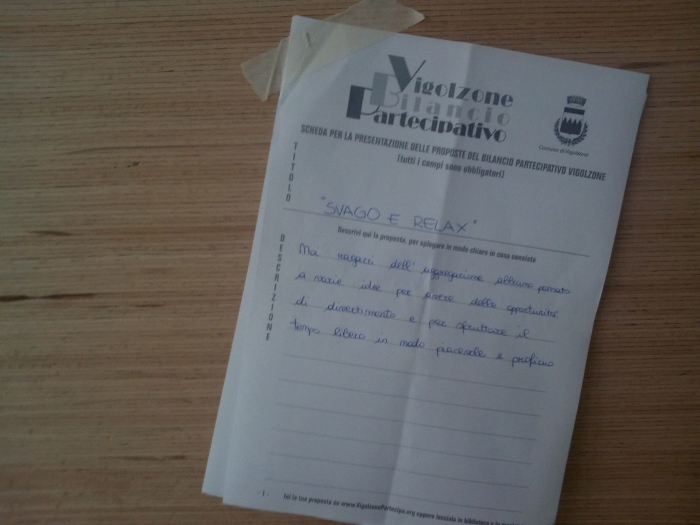 Vigolzone
Bilancio
Partecipativo
Comune di Vigolzone
SCHEDA PER LA PRESENTAZIONE DELLE PROPOSTE DEL BILANCIO PARTECIPATIVO VIGOLZONE
(tutti i campi sono obbligatori)
TITOLO
"SVAGO E RELAX"
Descrivi qui la proposta, per spiegare in modo chiaro in cosa consiste
DESCRIZIONE
Noi ragazzi dell'aggregazione abbiamo pensato
a varie idee per avere delle opportunità
di divertimento e per sfruttare il
tempo libero in modo piacevole e proficuo
- 1 -
sul www.VigolzonePartecipa.org oppure lasciala in biblioteca